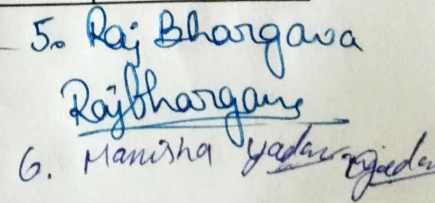 5. Raj Bhargava
Rajbhargava
6. Manisha yadav